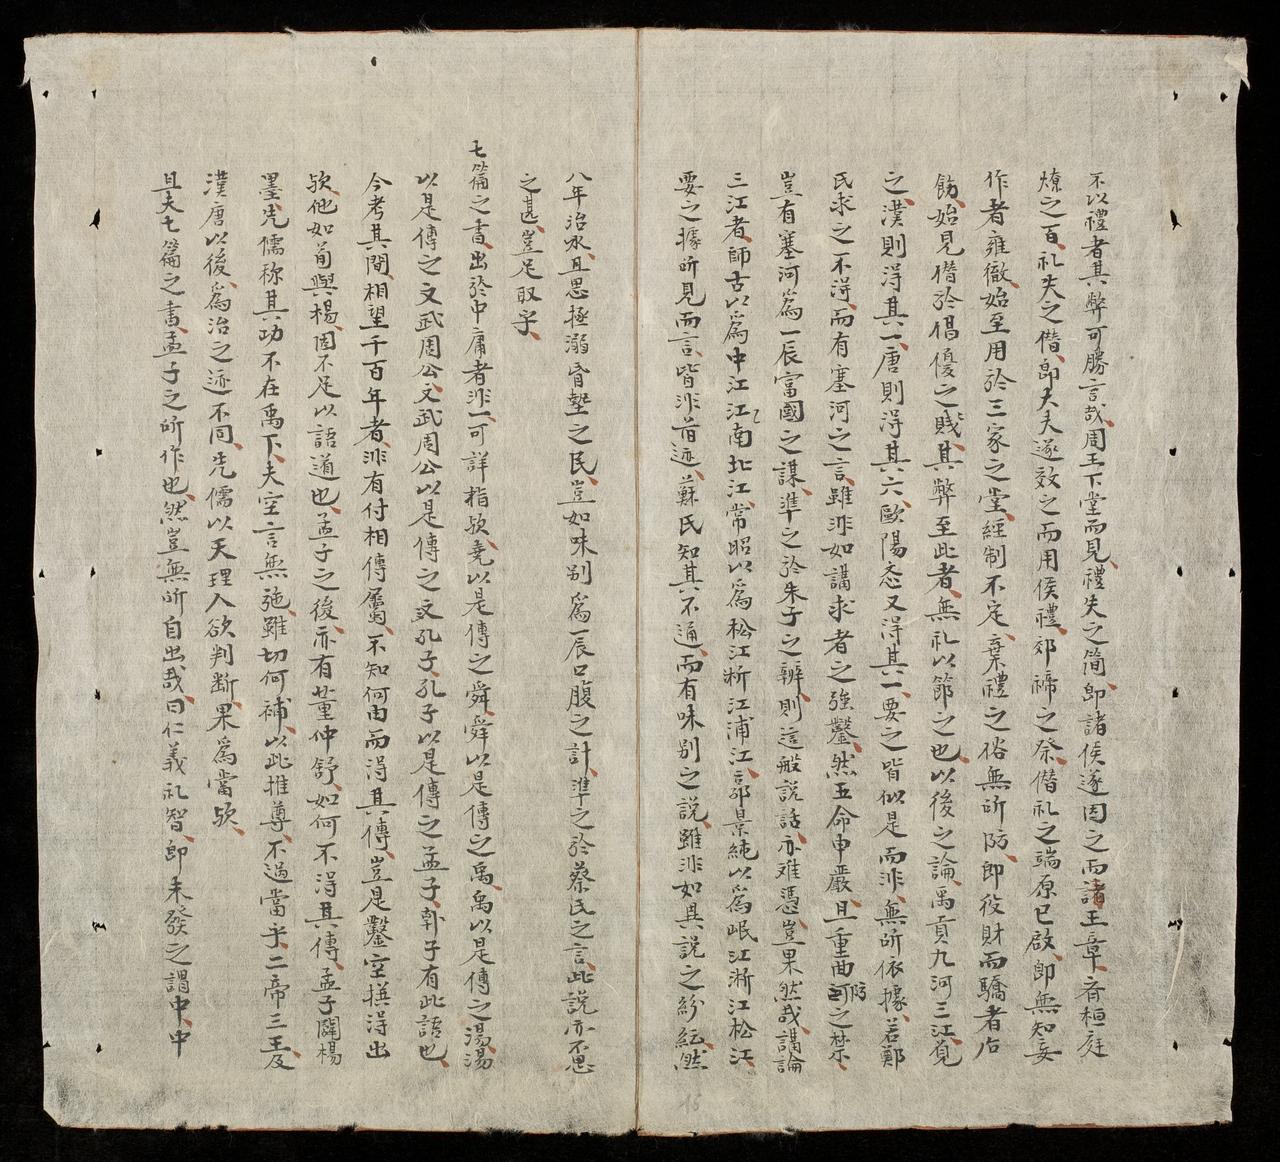 不以禮者其弊可勝言哉周王下堂而見禮失之简卽諸侯遂因之而諸王章斉桓庭
燎之百礼失之僭卽大夫遂效之而用侯禮郊禘之祭僭礼之端原已啟卽無知妄
作者雍徹始至用於三家之堂經制不定棄禮之俗無所防卽役財而驕者后
飾始見僭於倡優之賤其弊至此者無礼以節之也以後之論禹貢九河三江覓
之漢則淂其一唐則淂其六歐陽忞又淂其一要之皆似是而非無所依據若鄭
氏求之不淂而有塞河之言雖非如講求者之強鑿然五命申嚴且重曲防之禁
豈有塞河爲一辰富國之謀準之於朱子之辨則這般説話亦难憑豈果然哉講論
三江者師古以爲中江江南北江常昭以爲松江浙江浦江郭景純以爲岷江浙江松江
要之據所見而言皆非舊迹蘇氏知其不通而有味别之説雖非如其説之紛紜然
八年治水且思拯溺昏墊之民豈如味别爲一辰口腹之計準之於蔡氏之言此説亦不思
之甚豈足取乎
七篇之書出於中庸者非一可詳指欤堯以是傳之舜舜以是傳之禹禹以是傳之湯湯
以是傳之文武周公文武周公以是傳之文孔子孔子以是傳之孟子軻子有此語也
今考其間相望千百年者非有付相傳屬不知何由而淂其傳豈是鑿空撰淂出
欤他如荀與楊固不足以語道也孟子之後亦有董仲舒如何不淂其傳孟子闢楊
墨先儒称其功不在禹下夫空言無施雖切何補以此推尊不過當乎二帝三王及
漢唐以後爲治之迹不同先儒以天理人欲判断果爲當欤
且夫七篇之書孟子之所作也然豈無所自出哉曰仁義礼智卽未發之謂中中